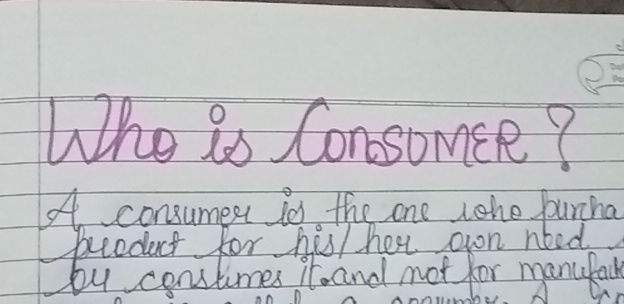 Who is ConsOMER?
A consumer is the one who purcha
product for his/her own need
by constumes it and not for manufact